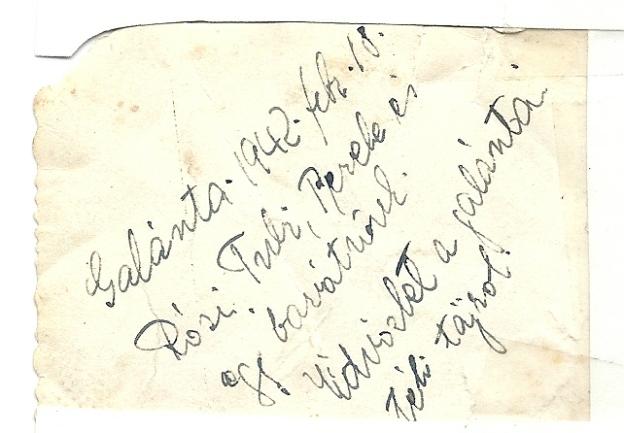 Galánta. 1942. febr. 18.
Rózsi, Tubi, Pereke és
egy barátnőnk.
Üdvözlet a galántai
téli tájról!